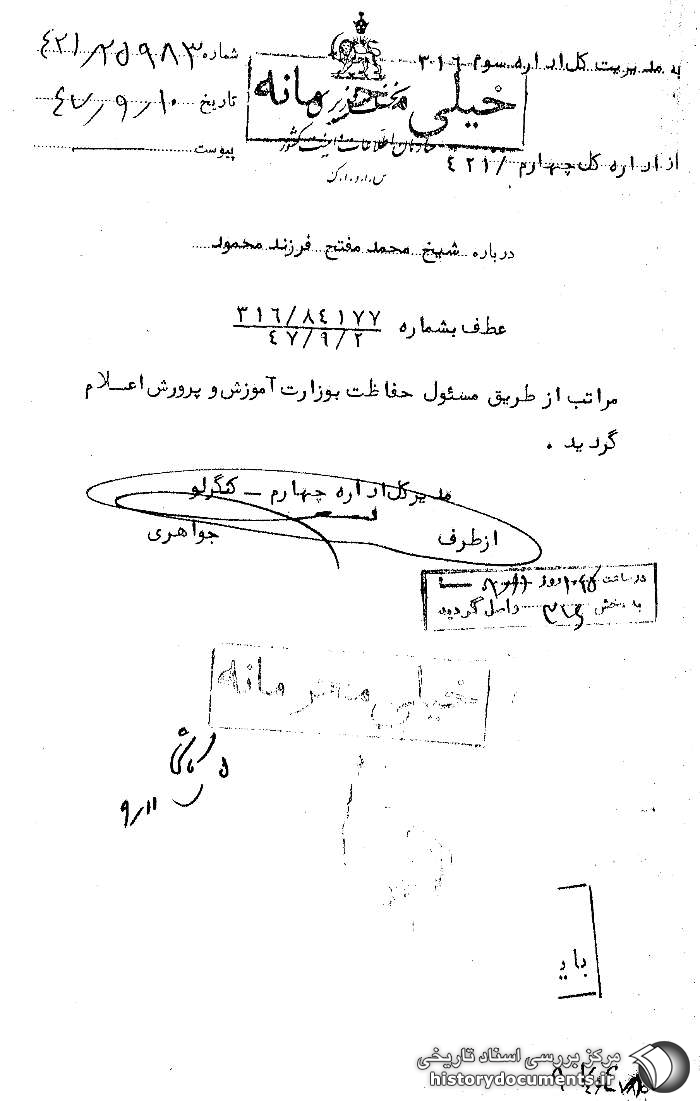 به مدیریت کل اداره سوم ۳۱٦
شماره ٤۲۱/۲۵۹۸۳
خیلی محرمانه
تاریخ ٤۷/۹/۱۰
سازمان اطلاعات و امنیت کشور
از اداره کل چهارم / ٤۲۱
پیوست
س.ا.و.ا.ک
درباره شیخ محمد مفتح فرزند محمود
عطف بشماره ۳۱٦/۸٤۱۷۷
٤۷/۹/۲
مراتب از طریق مسئول حفاظت بوزارت آموزش و پرورش اعــلام
گردید .
مدیرکل اداره چهارم ـ کنگرلو
از طرف جواهری
در ساعت روز
به بخش ۳۱٦ واصل گردید
خیلی محرمانه
۹/۱۱
بایـ
مرکز بررسی اسناد تاریخی
historydocuments.ir